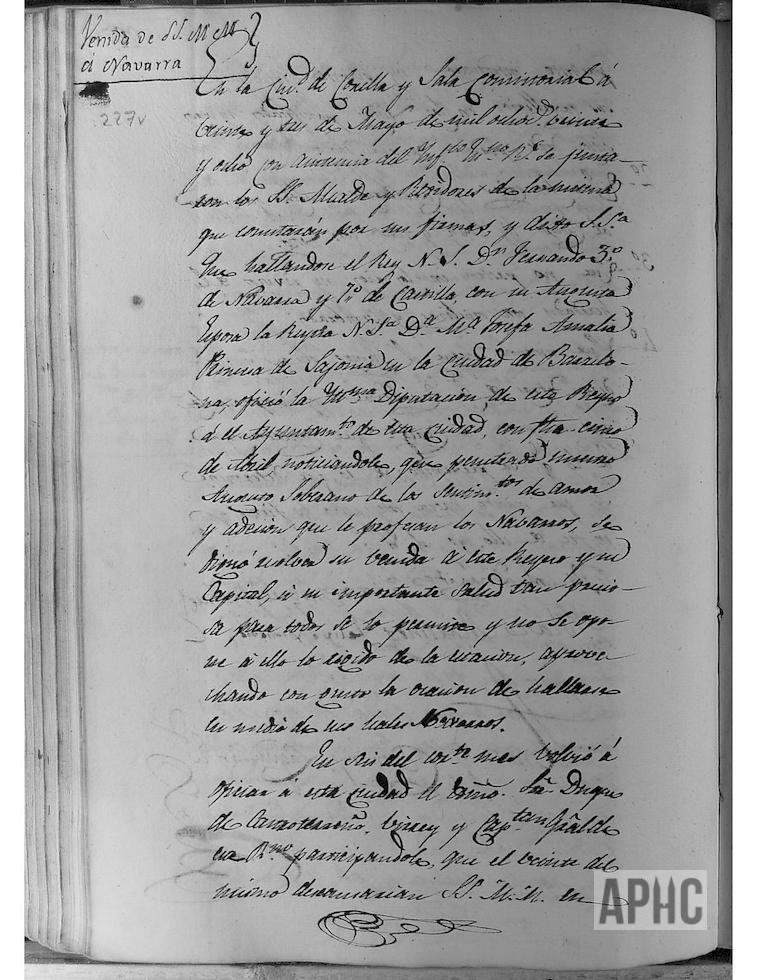 Venida de SS. M M
á Navarra
227v
En la Ciud.d de Corella y Sala Consistorial á
veinte y tres de Mayo de mil ochoc.s veinte
y ocho con asistencia del
se junta-
ron los SS. Alcalde y Rexidores de la misma
que constarán por sus firmas, y dixo S.Sa
Que hallandose el Rey N. S. D.n Fernando 3.o
de Navarra y 7.o de Castilla, con su Augusta
Esposa la Reyna N. S.ra D.a M.a Josefa Amalia
Princesa de Sajonia en la Ciudad de Barcelo-
na, ofició la Ill.ma Diputacion de este Reyno
á el Ayuntam.to de esta Ciudad, con fha. cinco
de Abril noticiandole, que penetrado nuestro
Augusto Soberano de los sentim.tos de amor
y adesion que le profesan los Navarros, se
dignó resolver su venida á este Reyno y su
Capital, si su importante salud tan precio-
sa para todos se lo permite y no se opo-
ne á ello lo rigido de la estacion, aprove-
chando con gusto la ocasion de hallarse
en medio de sus leales Navarros.
En seis del corr.te mes volvió á
oficiar á esta Ciudad el Exmo. Sr. Duque
de Castroterreño, Virrey y Cap.tan Gral de
este R.no participandole, que el veinte del
mismo descansarian SS. M.M. en
APHC